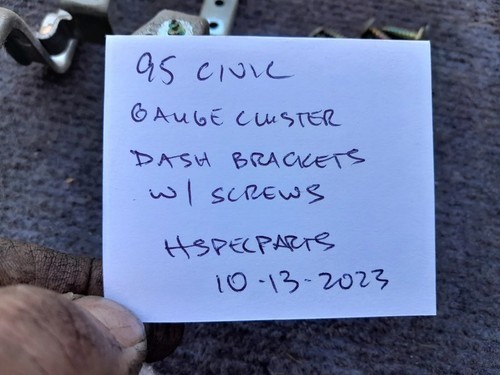 95 CIVIC
GAUGE CLUSTER
DASH BRACKETS
W/ SCREWS
HSPECPARTS
10-13-2023